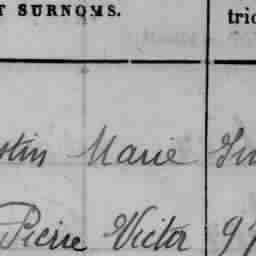 T SURNOMS.
tric
stin Marie
Pierre Victor 97